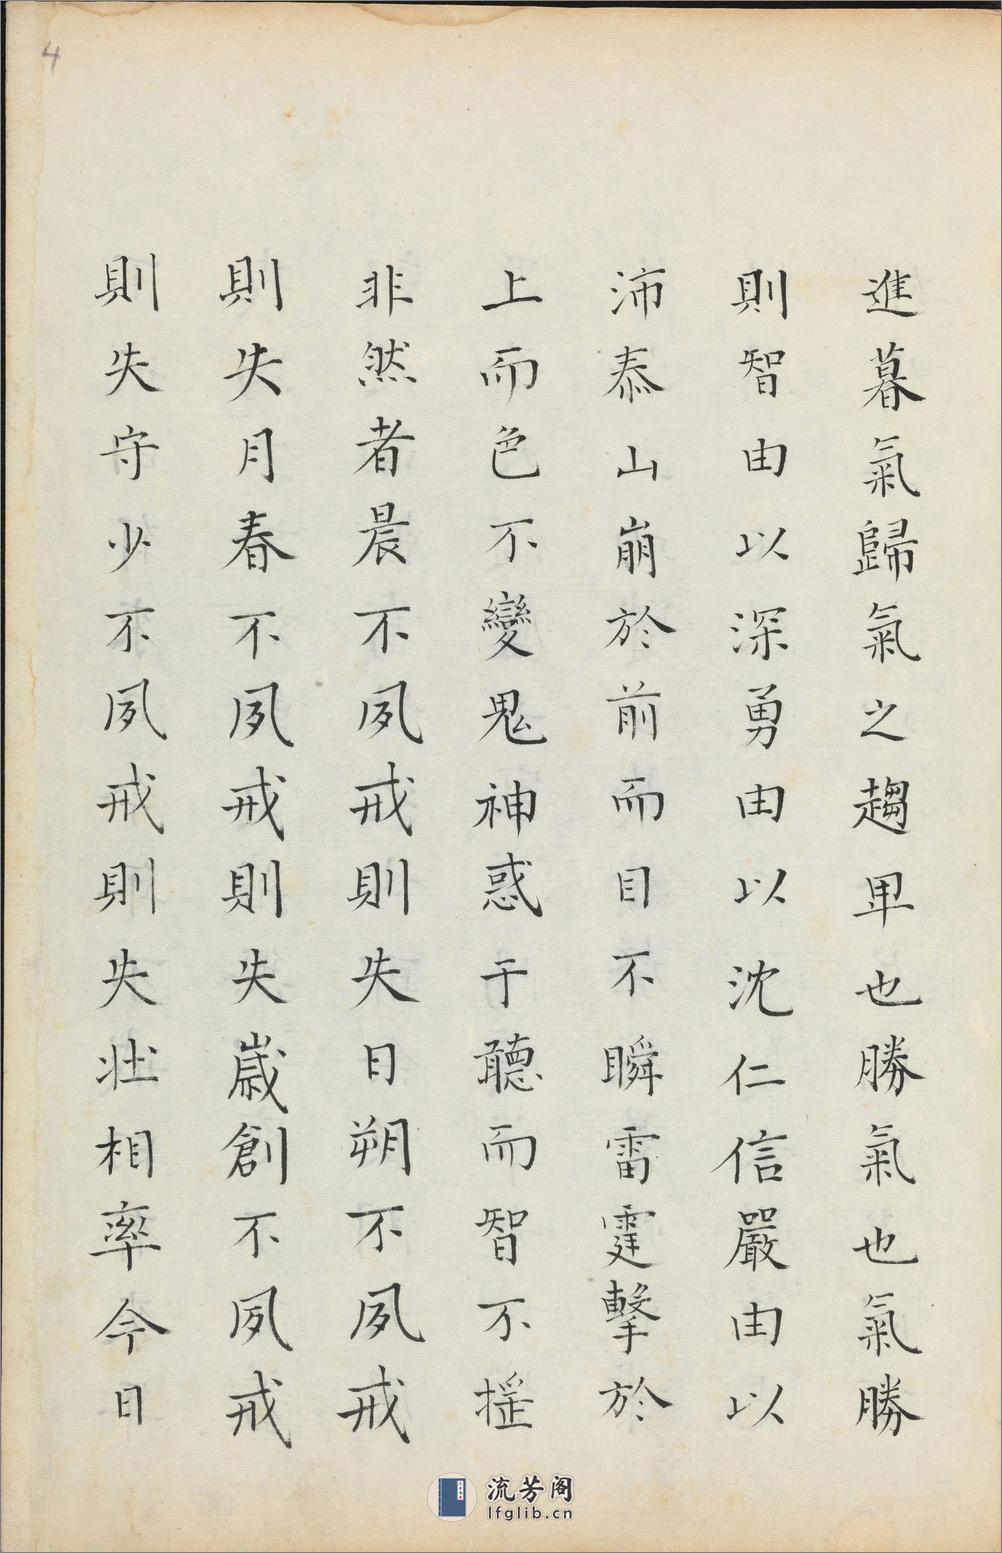 4
進暮氣歸氣之趨卑也勝氣也氣勝
則智由以深勇由以沈仁信嚴由以
沛泰山崩於前而目不瞬雷霆擊於
上而色不變鬼神惑于聽而智不摇
非然者晨不夙戒則失日朔不夙戒
則失月春不夙戒則失歲創不夙戒
則失守少不夙戒則失壯相率今日
流芳阁
lfglib.cn